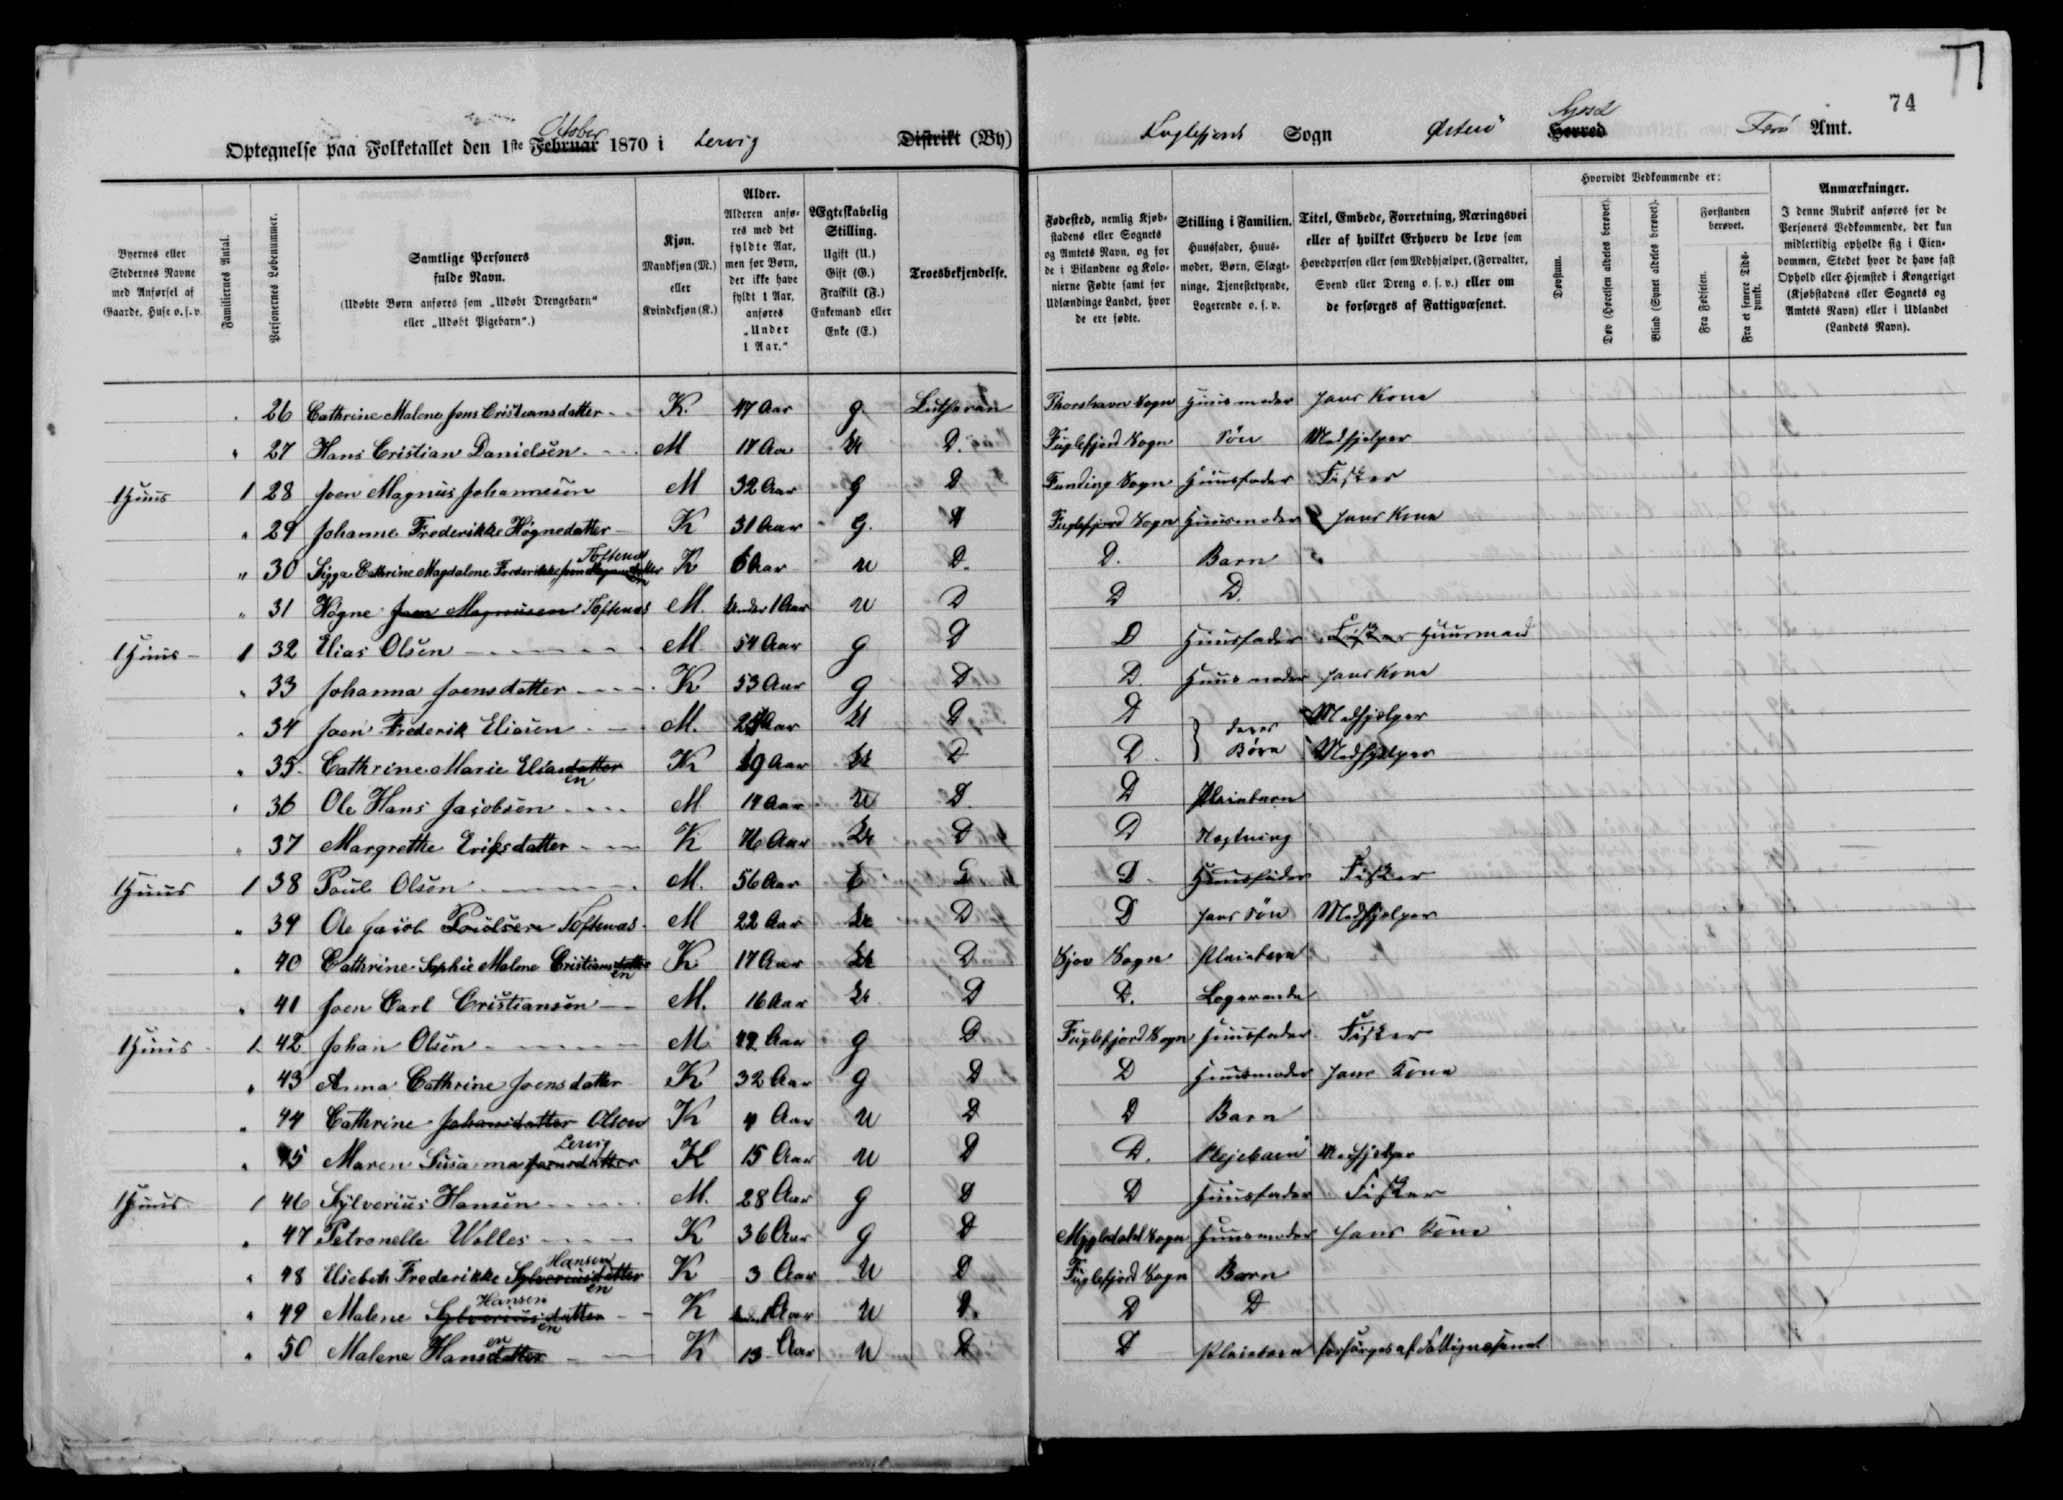 74
Optegnelse paa Folketallet den 1ste Februar October 1870 i Lervig Distrikt (By) Fuglefjord Sogn Østerö Herred Syssel Færö Amt.
Byernes eller Stedernes Navne med Anførsel af Gaarde, Huse o. s. v. | Familiernes Antal. | Personernes Løbenummer. | Samtlige Personers fulde Navn. (Udøbte Børn anføres som „Udøbt Drengebarn“ eller „Udøbt Pigebarn“.) | Kjøn. Mandkjøn (M.) eller Kvindekjøn (K.) | Alder. Alderen anføres med det fyldte Aar, men for Børn, der ikke have fyldt 1 Aar, anføres „Under 1 Aar.“ | Ægteskabelig Stilling. Ugift (U.) Gift (G.) Fraskilt (F.) Enkemand eller Enke (E.) | Troesbekjendelse. | Fødested, nemlig Kjøbstadens eller Sognets og Amtets Navn, og for de i Bilandene og Kolonierne Fødte samt for Udlændinge Landet, hvor de ere fødte. | Stilling i Familien. Huusfader, Huusmoder, Børn, Slægtninge, Tjenestetyende, Logerende o. s. v. | Titel, Embede, Forretning, Næringsvei eller af hvilket Erhverv de leve som Hovedperson eller som Medhjælper, (Forvalter, Svend eller Dreng o. s. v.) eller om de forsørges af Fattigvæsenet. | Hvorvidt Vedkommende er: Døvstum. | Døv (Hørelsen aldeles berøvet). | Blind (Synet aldeles berøvet). | Forstanden berøvet. Fra Fødselen. | Fra et senere Tidspunkt. | Anmærkninger. I denne Rubrik anføres for de Personers Vedkommende, der kun midlertidig opholde sig i Eiendommen, Stedet hvor de have fast Ophold eller Hjemsted i Kongeriget (Kjøbstadens eller Sognets og Amtets Navn) eller i Udlandet (Landets Navn).
26 Cathrine Malene Jens Cristiansdatter K. 47 Aar g. Lutheran Thorshavn Sogn Huusmoder hans Kone
" 27 Hans Cristian Danielsen M 17 Aar U D. Fuglefjord Sogn Søn Medhjelper
1 Huus 1 28 Joen Magnus Johannesen M 32 Aar g D Funding Sogn Huusfader Fisker
" 29 Johanne Frederikke Högnedatter K 31 Aar G. D Fuglefjord Sogn Huusmoder hans Kone
" 30 Sigga Cathrine Magdalene Frederikke Joen Magnusdatter Toftenæs K 6 Aar U D. D. Barn
" 31 Högne Joen Magnusen Toftenæs M. Under 1 Aar U D D D.
1 Huus 1 32 Elias Olsen M 54 Aar g D D Huusfader Fisker Huusmand
" 33 Johanna Joensdatter K 53 Aar g D D. Huusmoder hans Kone
" 34 Joen Frederik Eliasen M. Aar U D D deres Børn Medhjelper
" 35. Cathrine Marie Eliasdatter en K 19 Aar U D D. Medhjelper
" 36 Ole Hans Jacobsen M 14 Aar U D. D Pleiebarn
" 37 Margrethe Eriksdatter K 76 Aar U D D
1 Huus 1 38 Poul Olsen M. 56 Aar E D D. Huusfader Fisker
" 39 Ole Jacob Poulsen Toftenæs M 22 Aar U D D hans Søn Medhjelper
" 40 Cathrine Sophie Malene Cristiansdatter en K 17 Aar U D Sjov Sogn Pleiebarn
" 41 Joen Carl Cristiansen M. 16 Aar U D D. Logerende
1 Huus 1 42 Johan Olsen M 42 Aar g D Fuglefjord Sogn Huusfader Fisker
" 43 Anna Cathrine Joensdatter K 32 Aar g D D Huusmoder hans Kone
" 44 Cathrine Johansdatter Olsen K 4 Aar U D D Barn
" 45 Maren Susanna Joensdatter Lervig K 15 Aar U D D. Plejebarn Medhjelper
1 Huus 1 46 Sylverius Hansen M. 28 Aar g D D Huusfader Fisker
" 47 Petronelle Welles K 36 Aar g D Mygledahl Sogn Huusmoder hans Kone
" 48 Elsebeth Frederikke Sylveriusdatter Hansen en K 3 Aar U D Fuglefjord Sogn Barn
" 49 Malene Sylveriusdatter Hansen en K Under 1 Aar U D. D D
" 50 Malene Hansdatter en K 13 Aar U D D Pleiebarn forsørges af Fattigvæsenet